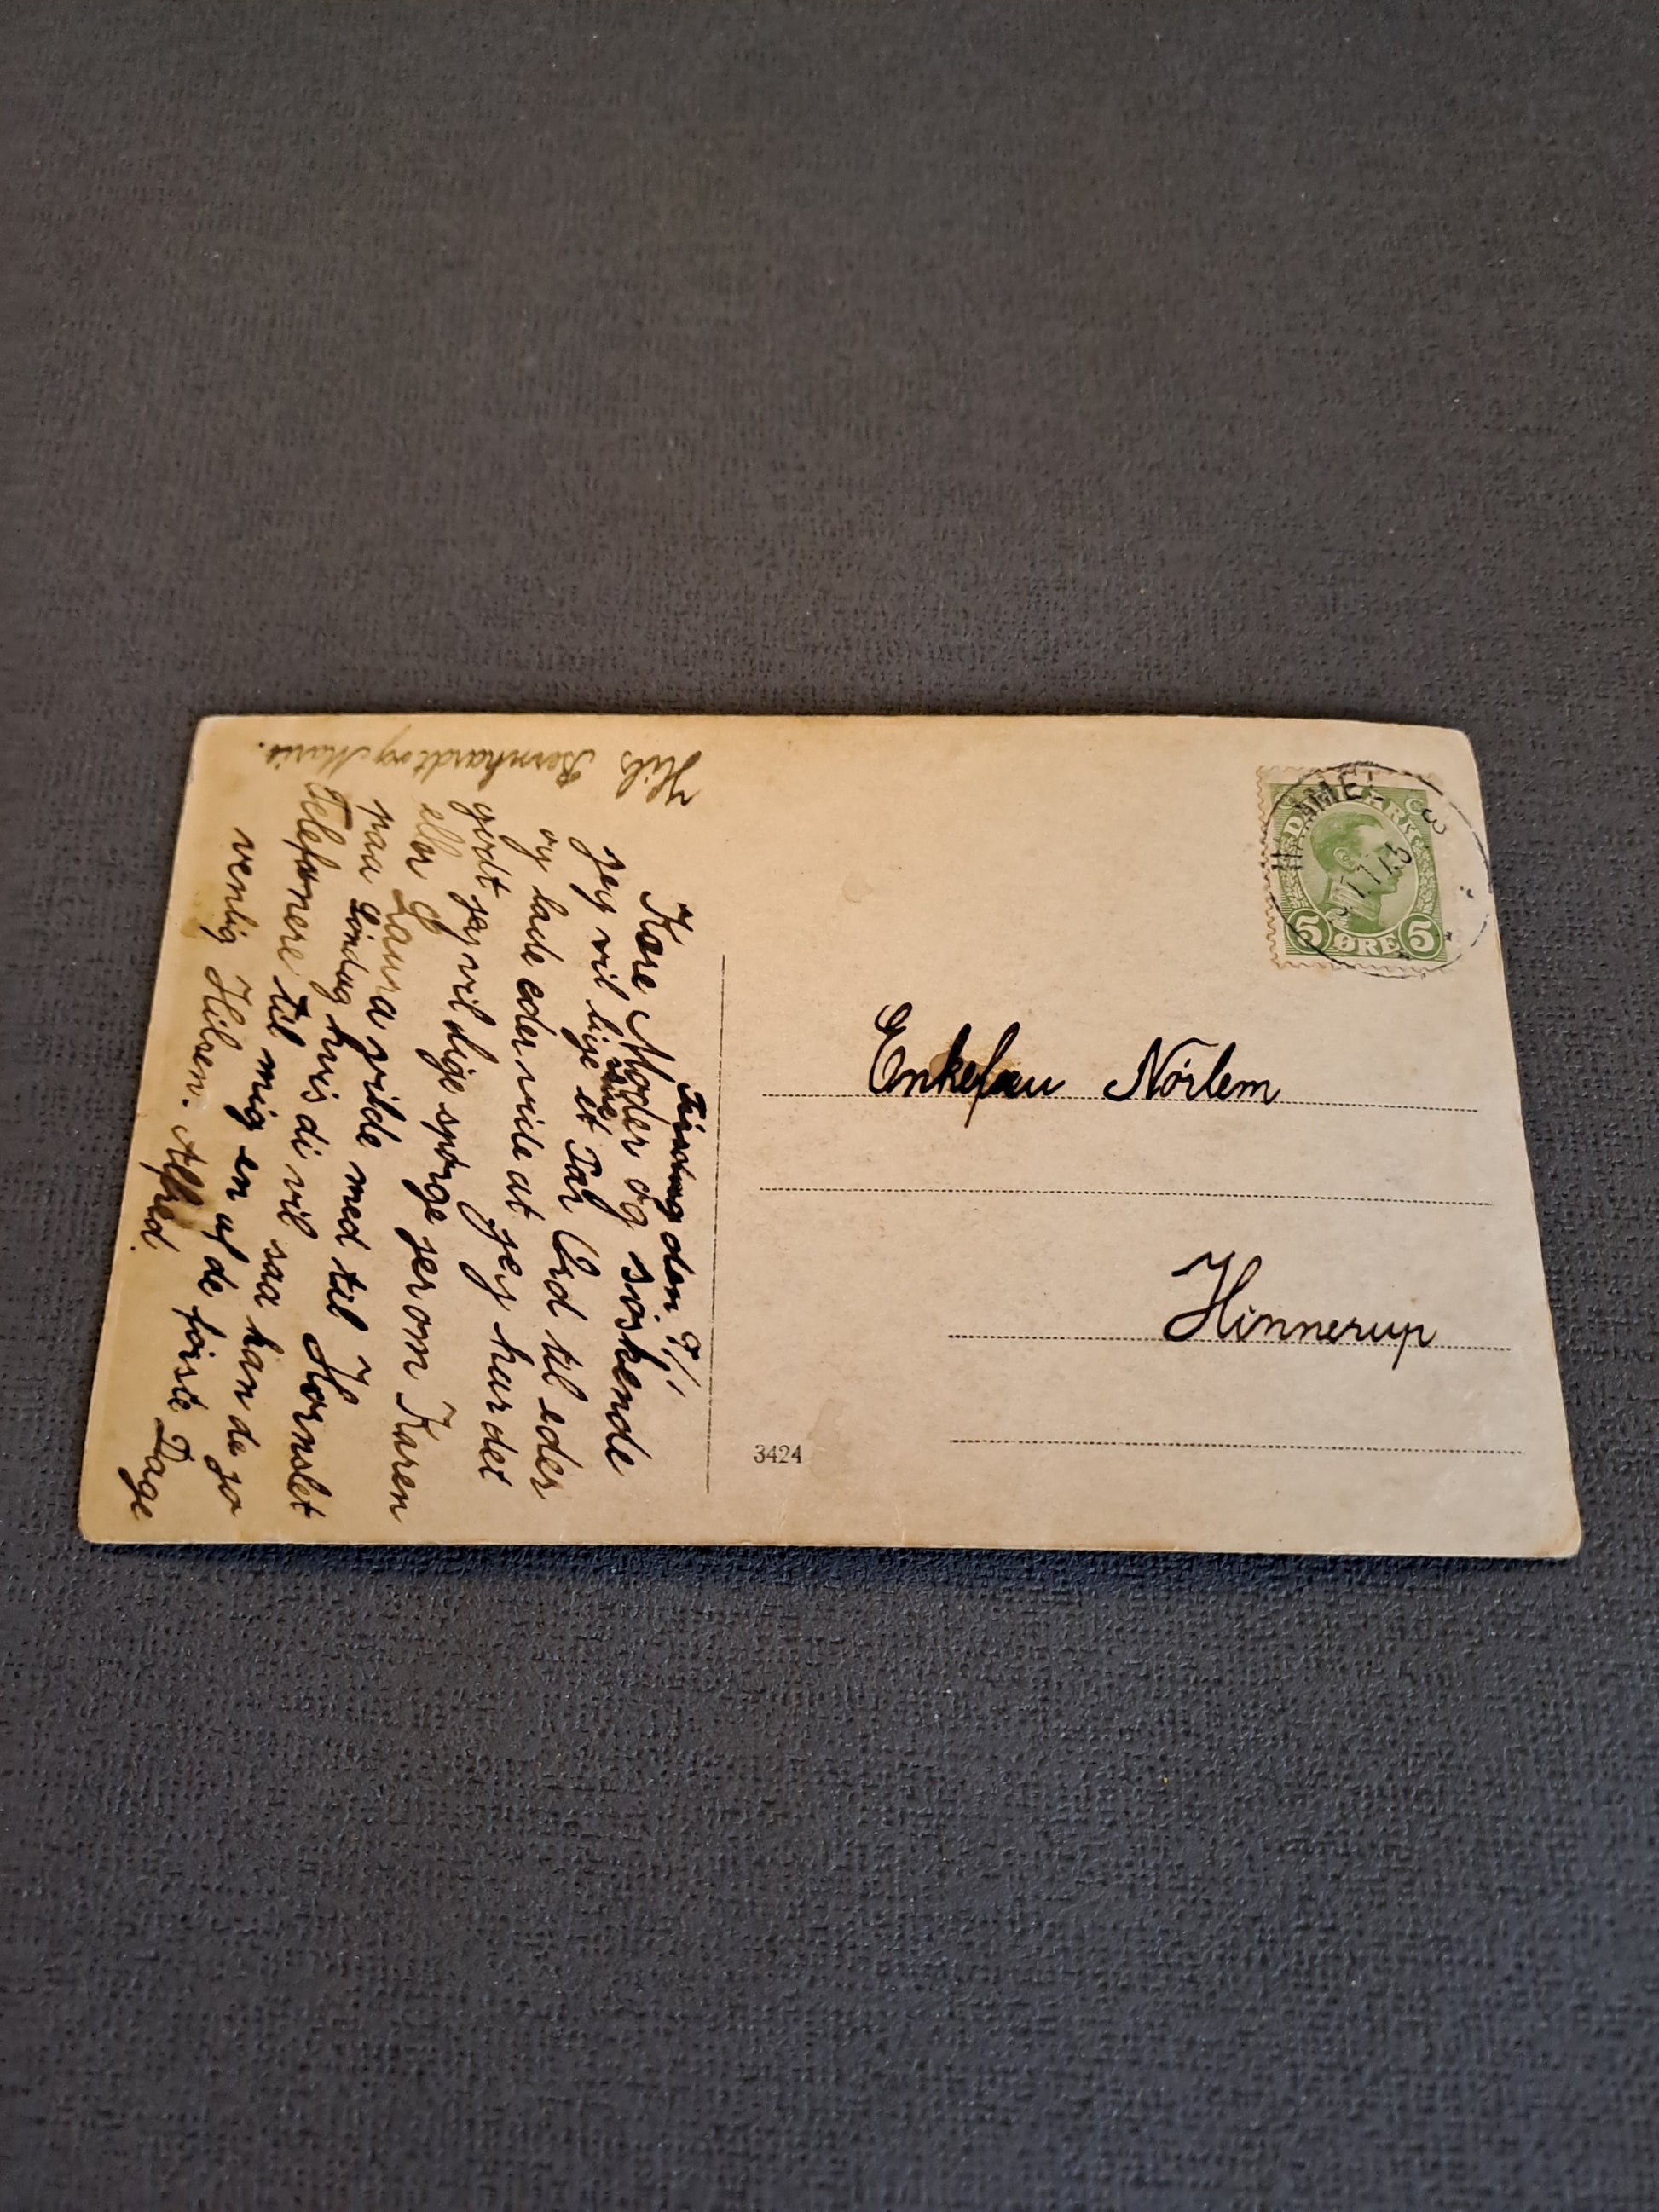 Tirsdag den 9/1
Kære Moder og søskende
Jeg vil lige sende et Par Ord til eder
og lade eder vide at jeg har det
godt jeg vil lige spørge jer om Karen
eller Laura vilde med til Hornslet
paa Søndag hvis di vil saa kan de jo
Telefonere til mig en af de første Dage
venlig Hilsen. Alfred.
Hils Bernhardt og Marie.
HAMMEL
DANMARK
5 ØRE 5
Enkefru Nörlem
Hinnerup
3424